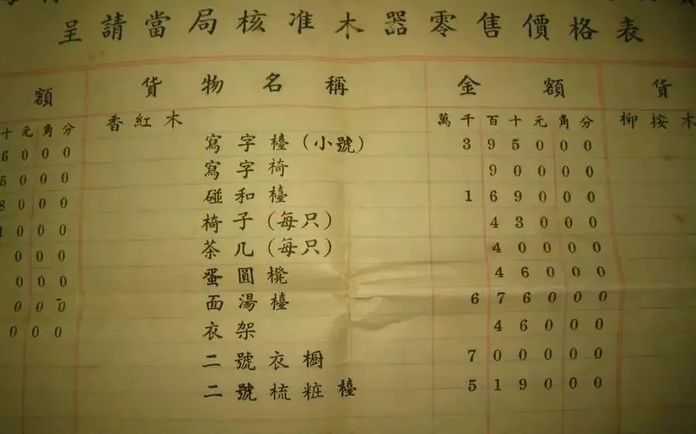 呈請當局核准木器零售價格表
額 貨物名稱 金額 貨
十元角分 香紅木 萬千百十元角分 柳桉木
6000 寫字檯(小號) 3950000
5000 寫字椅 90000
8000 碰和檯 1690000
1000 椅子(每只) 43000
000 茶几(每只) 40000
000 蛋圓櫈 46000
000 面湯檯 6760000
000 衣架 46000
二號衣櫥 7000000
二號梳粧檯 5190000